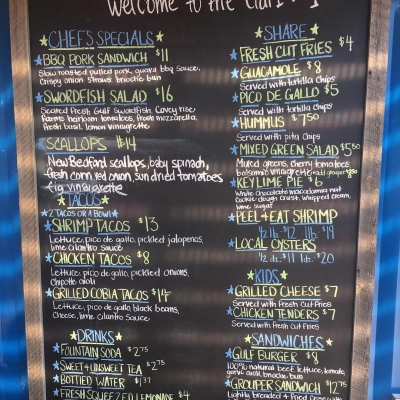 Welcome to the
CHEF'S SPECIALS
BBQ PORK SANDWICH $11
Slow roasted pulled pork, guava bbq sauce,
crispy onion straws, brioche bun
SWORDFISH SALAD $16
Seared Fresh Gulf Swordfish,
heirloom tomatoes, fresh mozzarella,
fresh basil, lemon vinaigrette
SCALLOPS $14
New Bedford scallops, baby spinach,
fresh corn, red onion, sun dried tomatoes
fig vinaigrette
TACOS
2 TACOS OR A BOWL
SHRIMP TACOS $13
Lettuce, pico de gallo, pickled jalapenos,
lime cilantro sauce
CHICKEN TACOS $8
Lettuce, pico de gallo, pickled onions,
chipotle aioli
GRILLED COBIA TACOS $14
Lettuce, pico de gallo, black beans,
cheese, lime cilantro sauce
DRINKS
FOUNTAIN SODA $2.75
SWEET + UNSWEET TEA $2.75
BOTTLED WATER $1.37
FRESH SQUEEZED LEMONADE $4
SHARE
FRESH CUT FRIES $4
GUACAMOLE $8
Served with tortilla chips
PICO DE GALLO $5
Served with tortilla chips
HUMMUS $7.50
Served with pita chips
MIXED GREEN SALAD $5.50
Mixed greens, cherry tomatoes
balsamic vinaigrette add grouper
KEY LIME PIE $6
White chocolate macadamia nut
cookie dough crust, whipped cream,
lime sugar
PEEL + EAT SHRIMP
1/2 lb. $12 lb. $19
LOCAL OYSTERS
1/2 dz. $11 dz. $20
KIDS
GRILLED CHEESE $7
Served with Fresh Cut Fries
CHICKEN TENDERS $7
Served with Fresh Cut Fries
SANDWICHES
GULF BURGER $8
100% natural beef, lettuce, tomato,
garlic dill, brioche bun
GROUPER SANDWICH $12.75
Lightly breaded + Fried Crisp